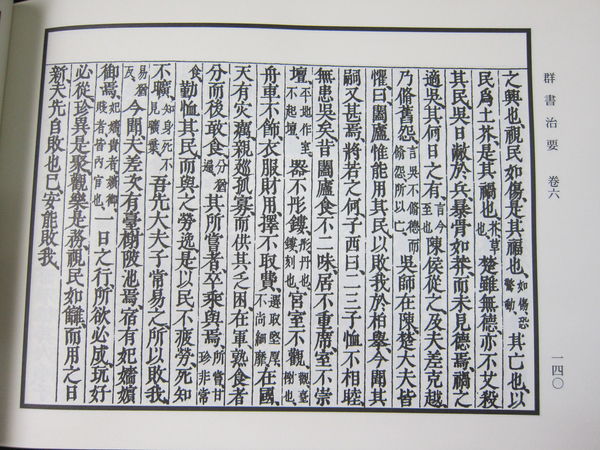 群書治要 卷六
一四〇
之興也、視民如傷、是其福也、如傷恐驚動其亡也、以
民爲土芥、是其禍也、芥草也楚雖無德、亦不艾殺
其民、吳日敝於兵、暴骨如莽、而未見德焉、禍之
適吳、其何日之有、言今至也陳侯從之、及夫差克越、
乃脩舊怨、言吳不脩德而脩怨所以亡吳師在陳、楚大夫皆
懼曰、闔廬惟能用其民、以敗我於柏舉、今聞其
嗣又甚焉、將若之何、子西曰、二三子恤不相睦、
無患吳矣、昔闔廬食不二味、居不重席、室不崇
壇、平地作室不起壇器不彤鏤、彤丹也鏤刻也宮室不觀、觀臺榭也
舟車不飾、衣服財用、擇不取費、選取堅厚不尚細靡在國、
天有灾癘、親巡孤寡、而供其乏困、在軍、熟食者
分而後敢食、分猶遍其所嘗者、卒乘與焉、所嘗甘珍非常
食勤恤其民、而與之勞逸、是以民不疲勞、死知
不曠、知身死不見曠棄吾先大夫子常易之、所以敗我、
易猶反今聞夫差次有臺榭陂池焉、宿有妃嬙嬪
御焉、妃嬙貴者嬪御賤者皆內官也一日之行、所欲必成、玩好
必從、珍異是聚、觀樂是務、視民如讎、而用之日
新、夫先自敗也已、安能敗我、